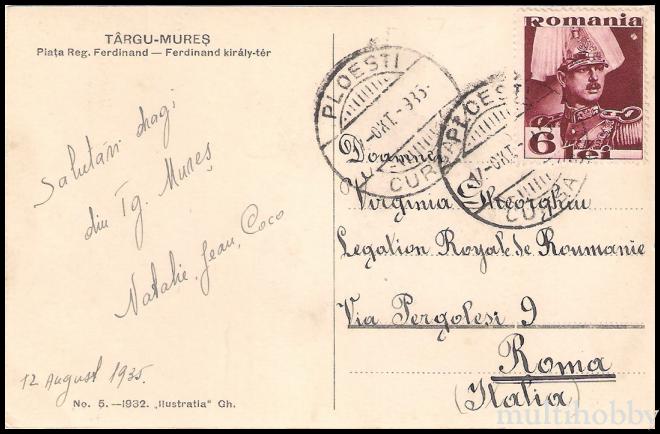 TÂRGU-MUREȘ
Piața Reg. Ferdinand — Ferdinand király-tér
Salutări dragi
din Tg. Mureș
Natalie, Jean, Coco
12 August 1935.
No. 5. —1932. „Ilustratia" Gh.
Romania
6 lei
PLOEȘTI
OKT. 935
CURSA
PLOESTI
OKT.
CURSA
Doamnei
Virginia Gheorghiu
Legation Royale de Roumanie
Via Pergolesi 9
Roma
(Italia)
multihobby